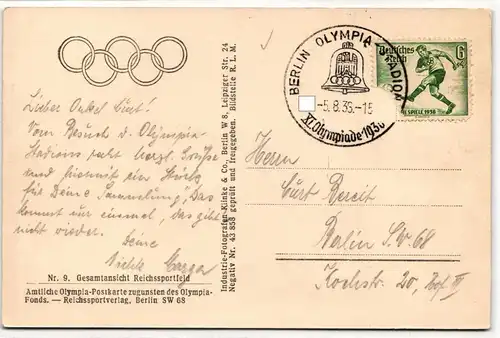 Lieber Onkel Curt!
Vom Besuch d. Olympia
Stadions recht herzl. Grüsse
und hiermit ein Stück
für Deine Sammlung. Das
kommt nur einmal, das gibt
nicht wieder.
Deine
Nichte
Nr. 9. Gesamtansicht Reichssportfeld
Amtliche Olympia-Postkarte zugunsten des Olympia-
Fonds. — Reichssportverlag, Berlin SW 68
Industrie-Fotografen-Klinke & Co., Berlin W 8, Leipziger Str. 24
Negativ Nr. 43 858 geprüft und freigegeben. Bildstelle R. L. M.
BERLIN OLYMPIA STADION
-5.8.36.-15
XI. Olympiade 1936
Deutsches
Reich
6
SPIELE 1936
Herrn
Curt Bereit
Berlin S.W. 68
Kochstr. 20, Hof III